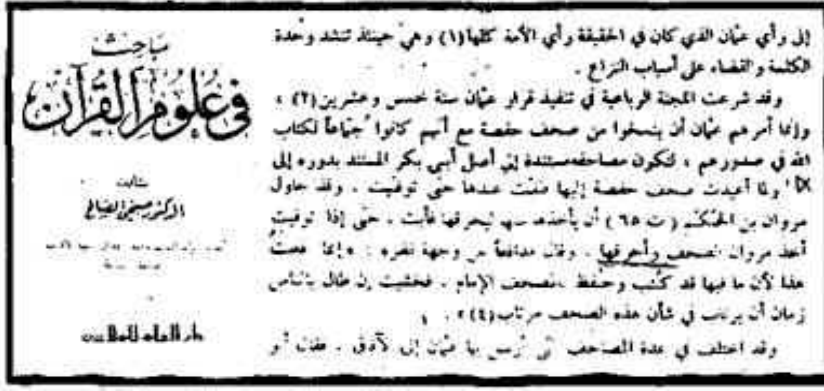 إلى رأي عثمان الذي كان في الحقيقة رأي الأمة كلها(١) وهي حينئذ تنشد وحدة
الكلمة والقضاء على أسباب النزاع .
وقد شرعت اللجنة الرباعية في تنفيذ قرار عثمان سنة خمس وعشرين(٢) ،
وإنما أمرهم عثمان أن ينسخوا من صحف حفصة مع أنهم كانوا جمّاعاً لكتاب
الله في صدورهم ، لتكون مصاحفه مستندة إلى أصل أبي بكر المستند بدوره إلى
ولما أعيدت صحف حفصة إليها ظلت عندها حتى توفيت . وقد حاول
مروان بن الحكم ( ت ٦٥ ) أن يأخذها منها ليحرقها فأبت . حتى إذا توفيت
أخذ مروان الصحف وأحرقها . وقال مدافعاً عن وجهة نظره : « إنما فعلت
هذا لأن ما فيها قد كتب وحفظ بالمصحف الإمام . فخشيت إن طال بالناس
زمان أن يرتاب في شأن هذه الصحف مرتاب(٤) » .
وقد اختلف في عدة المصاحف التي أرسل بها عثمان إلى الآفاق . فقال أبو
مباحث
في علوم القرآن
تأليف
الدكتور صبحي الصالح
دار العلم للملايين